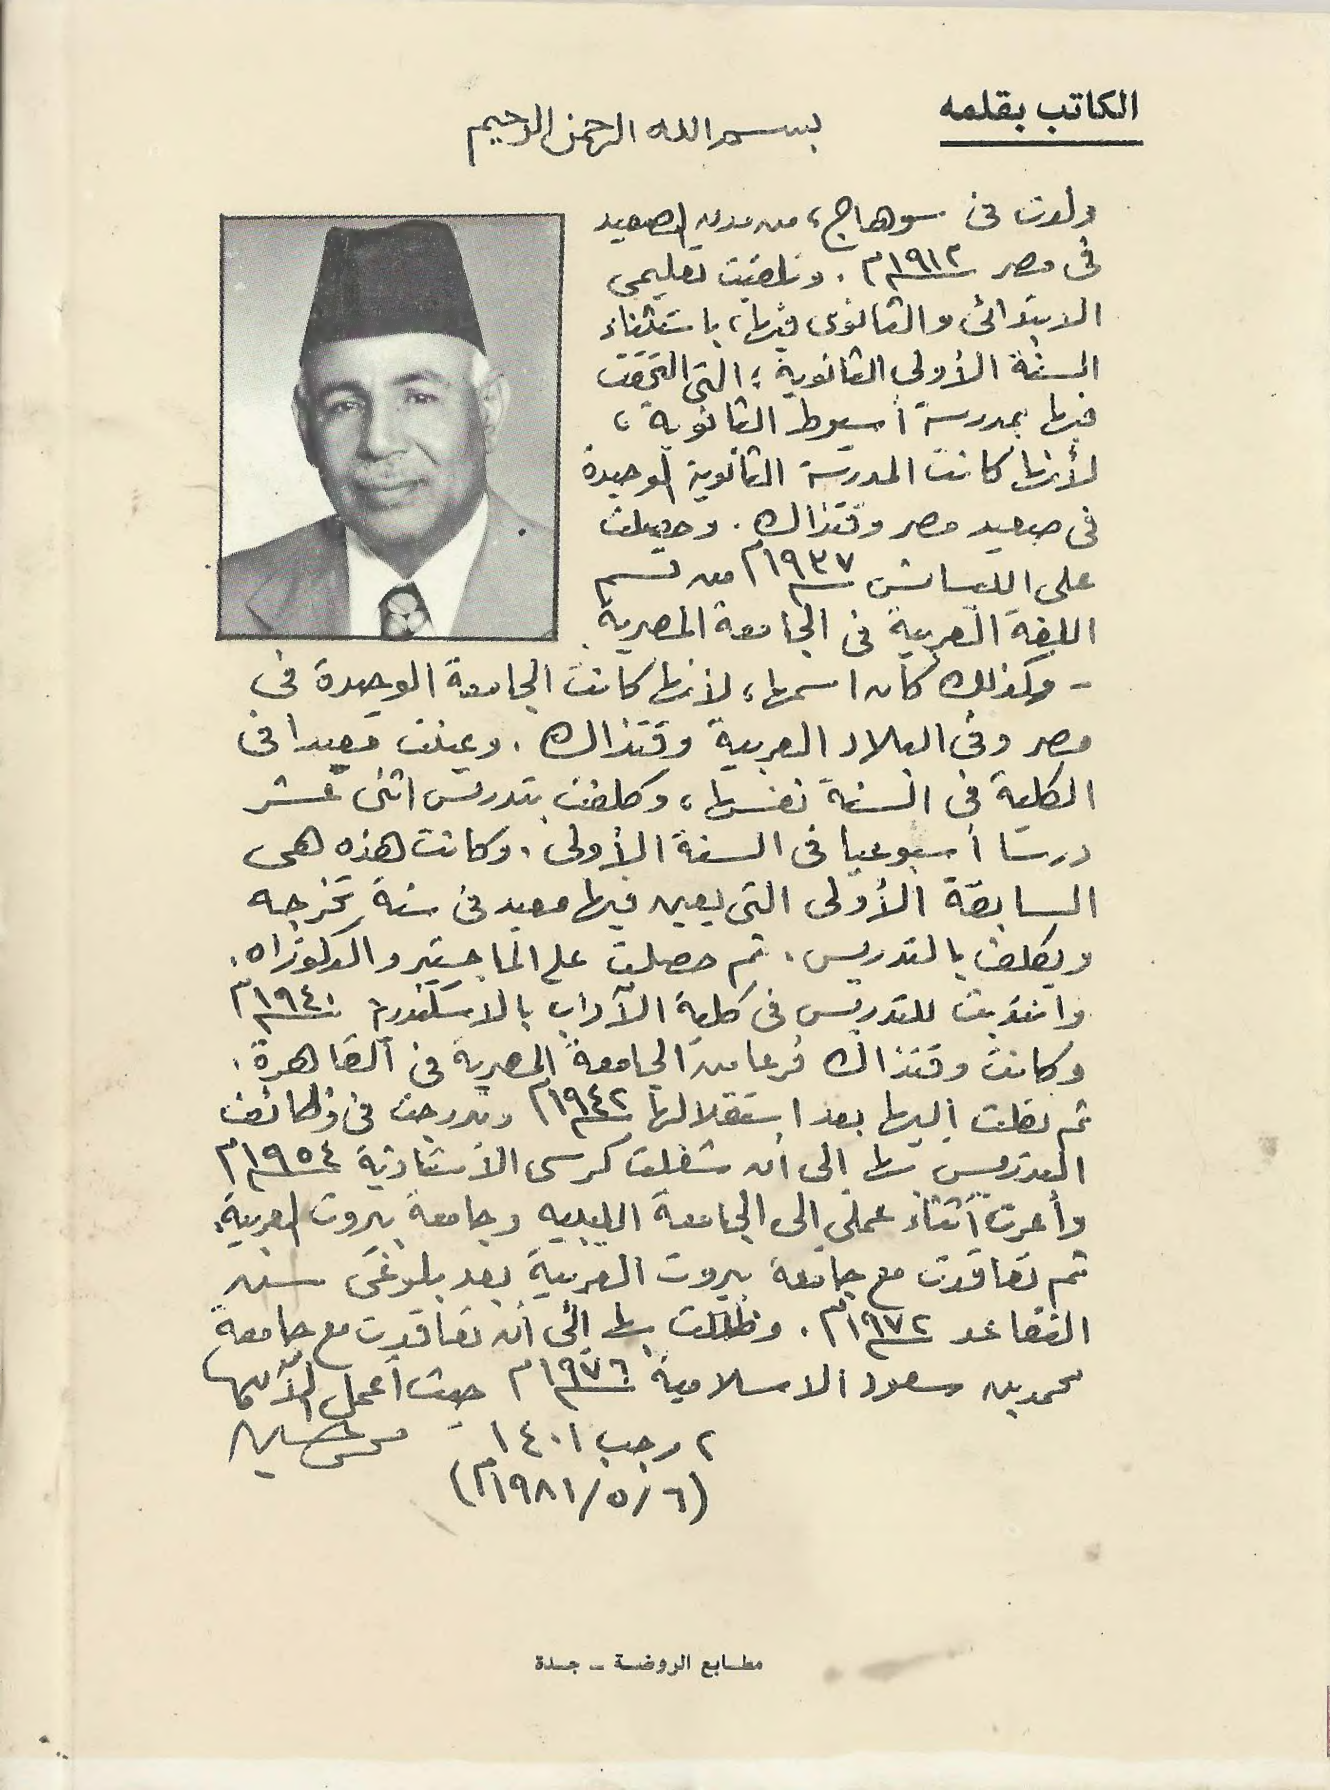 الكاتب بقلمه
بسم الله الرحمن الرحيم
ولدت فى سوهاج، من مدن الصعيد
فى مصر ١٩١٢م. وتلقيت تعليمى
الابتدائى والثانوى فيها، باستثناء
السنة الأولى الثانوية؛ التى التحقت
فيها بمدرسة أسيوط الثانوية،
لأنها كانت المدرسة الثانوية الوحيدة
فى صعيد مصر وقتذاك. وحصلت
على الليسانس ١٩٣٧م من قسم
اللغة العربية فى الجامعة المصرية
- وكذلك كان اسمها، لأنها كانت الجامعة الوحيدة فى
مصر وفى البلاد العربية وقتذاك. وعينت معيدا فى
الكلية فى السنة نفسها، وكلفت بتدريس اثنى عشر
درسا أسبوعيا فى السنة الأولى. وكانت هذه هى
السابقة الأولى التى يعين فيها معيد فى سنة تخرجه
ويكلف بالتدريس. ثم حصلت على الماجستير والدكتوراه.
وانتدبت للتدريس فى كلية الآداب بالاسكندرية ١٩٤٠م
وكانت وقتذاك فرعا من الجامعة المصرية فى القاهرة.
ثم نقلت إليها بعد استقلالها ١٩٤٢م وتدرجت فى وظائف
التدريس بها الى أن شغلت كرسى الأستاذية ١٩٥٤م
وأعرت أثناء عملى إلى الجامعة الليبية وجامعة بيروت العربية.
ثم تعاقدت مع جامعة بيروت العربية بعد بلوغى سن
التقاعد ١٩٧٢م. وظللت بها إلى أن تعاقدت مع جامعة
محمد بن سعود الاسلامية ١٩٧٦م حيث أعمل الآن بها
٢ رجب ١٤٠١
محمد حسين
(٦/٥/١٩٨١م)
مطابع الروضة - جدة